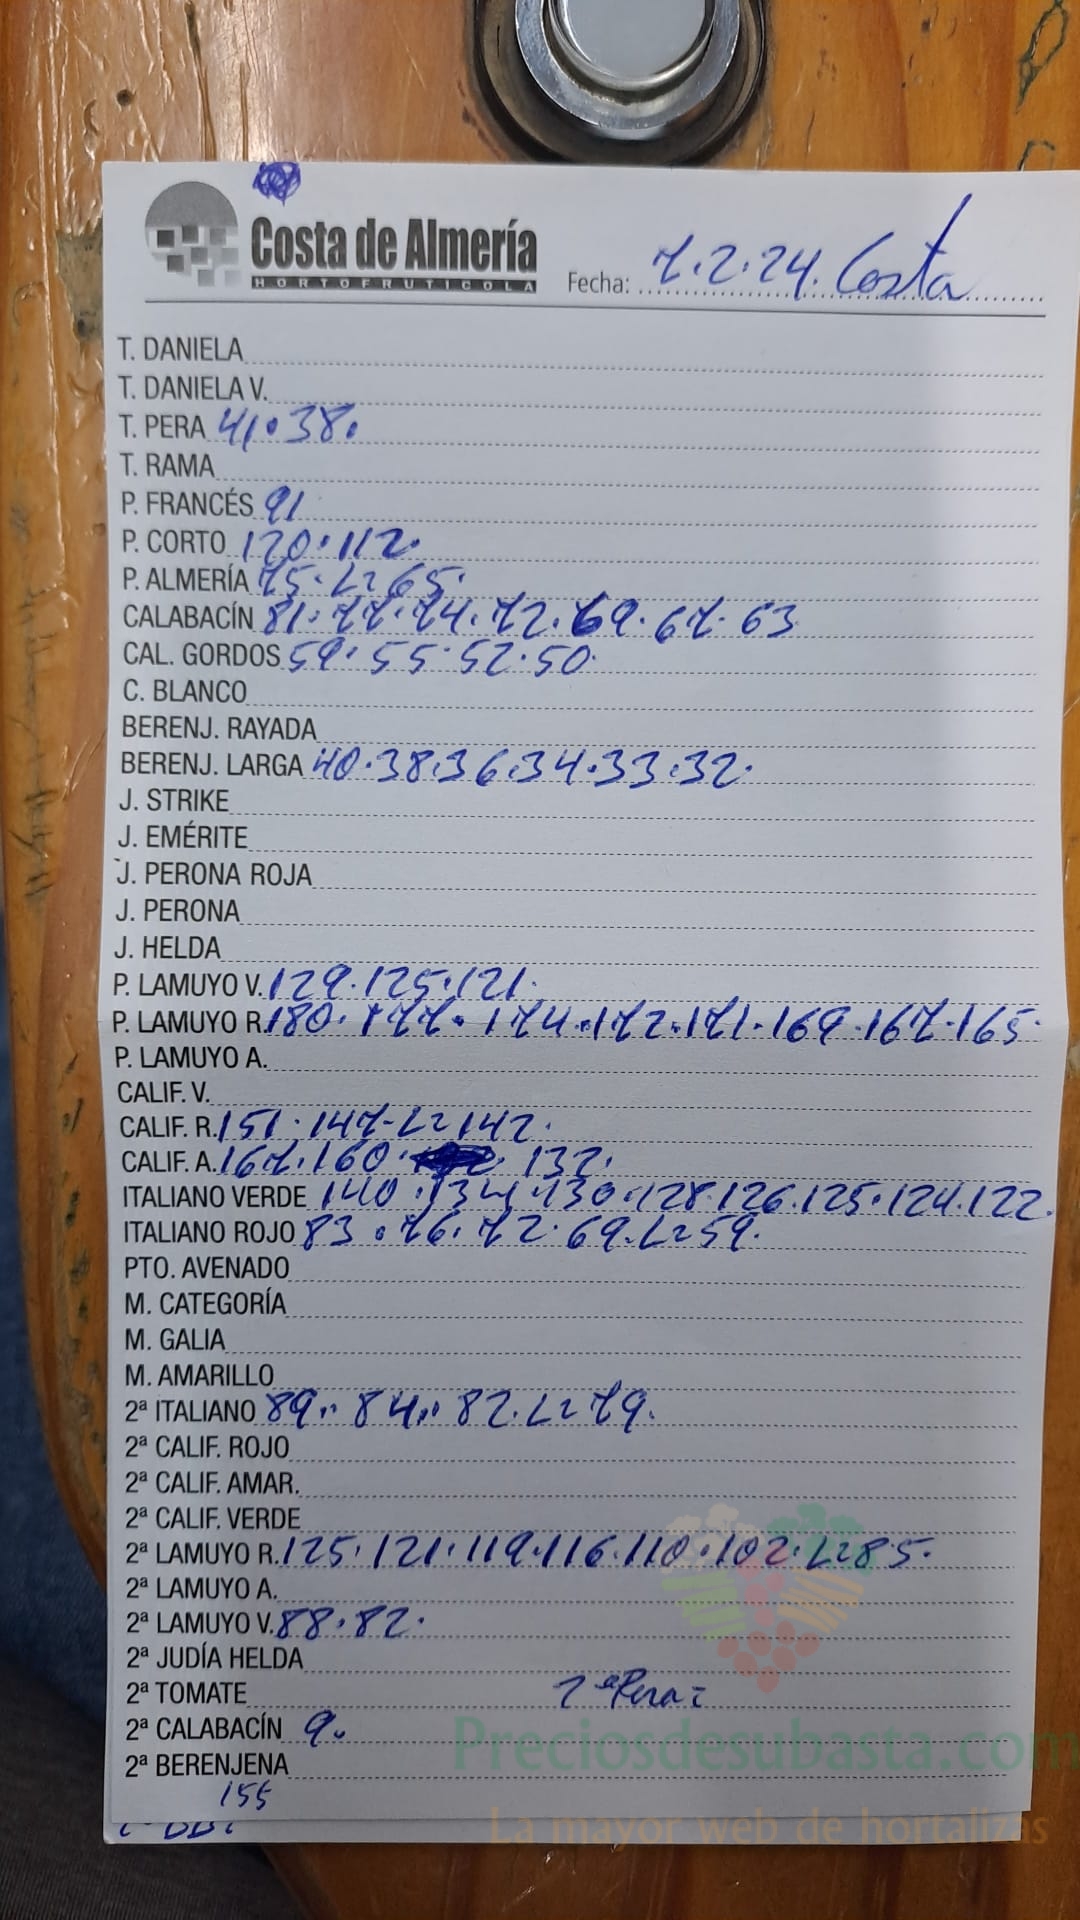 Costa de Almería
HORTOFRUTICOLA
Fecha: 7.2.24. Costa
T. DANIELA
T. DANIELA V.
T. PERA 41.38.
T. RAMA
P. FRANCÉS 91
P. CORTO 120.112.
P. ALMERÍA 75. L2 65.
CALABACÍN 81.77.74.72.69.67.63
CAL. GORDOS 59.55.52.50.
C. BLANCO
BERENJ. RAYADA
BERENJ. LARGA 40.38.36.34.33.32.
J. STRIKE
J. EMÉRITE
J. PERONA ROJA
J. PERONA
J. HELDA
P. LAMUYO V. 129.125.121.
P. LAMUYO R. 180.177.174.172.171.169.167.165.
P. LAMUYO A.
CALIF. V.
CALIF. R. 151.147-L2 142.
CALIF. A. 167.160. 132.
ITALIANO VERDE 140.134.130.128.126.125.124.122.
ITALIANO ROJO 83.76.72.69.L2 59.
PTO. AVENADO
M. CATEGORÍA
M. GALIA
M. AMARILLO
2ª ITALIANO 89..84..82.L2 79.
2ª CALIF. ROJO
2ª CALIF. AMAR.
2ª CALIF. VERDE
2ª LAMUYO R. 125.121.119.116.110.102.L2 85.
2ª LAMUYO A.
2ª LAMUYO V. 88.82.
2ª JUDÍA HELDA
2ª TOMATE 2ª Pera =
2ª CALABACÍN 9.
2ª BERENJENA
155
Preciosdesubasta.com
La mayor web de hortalizas